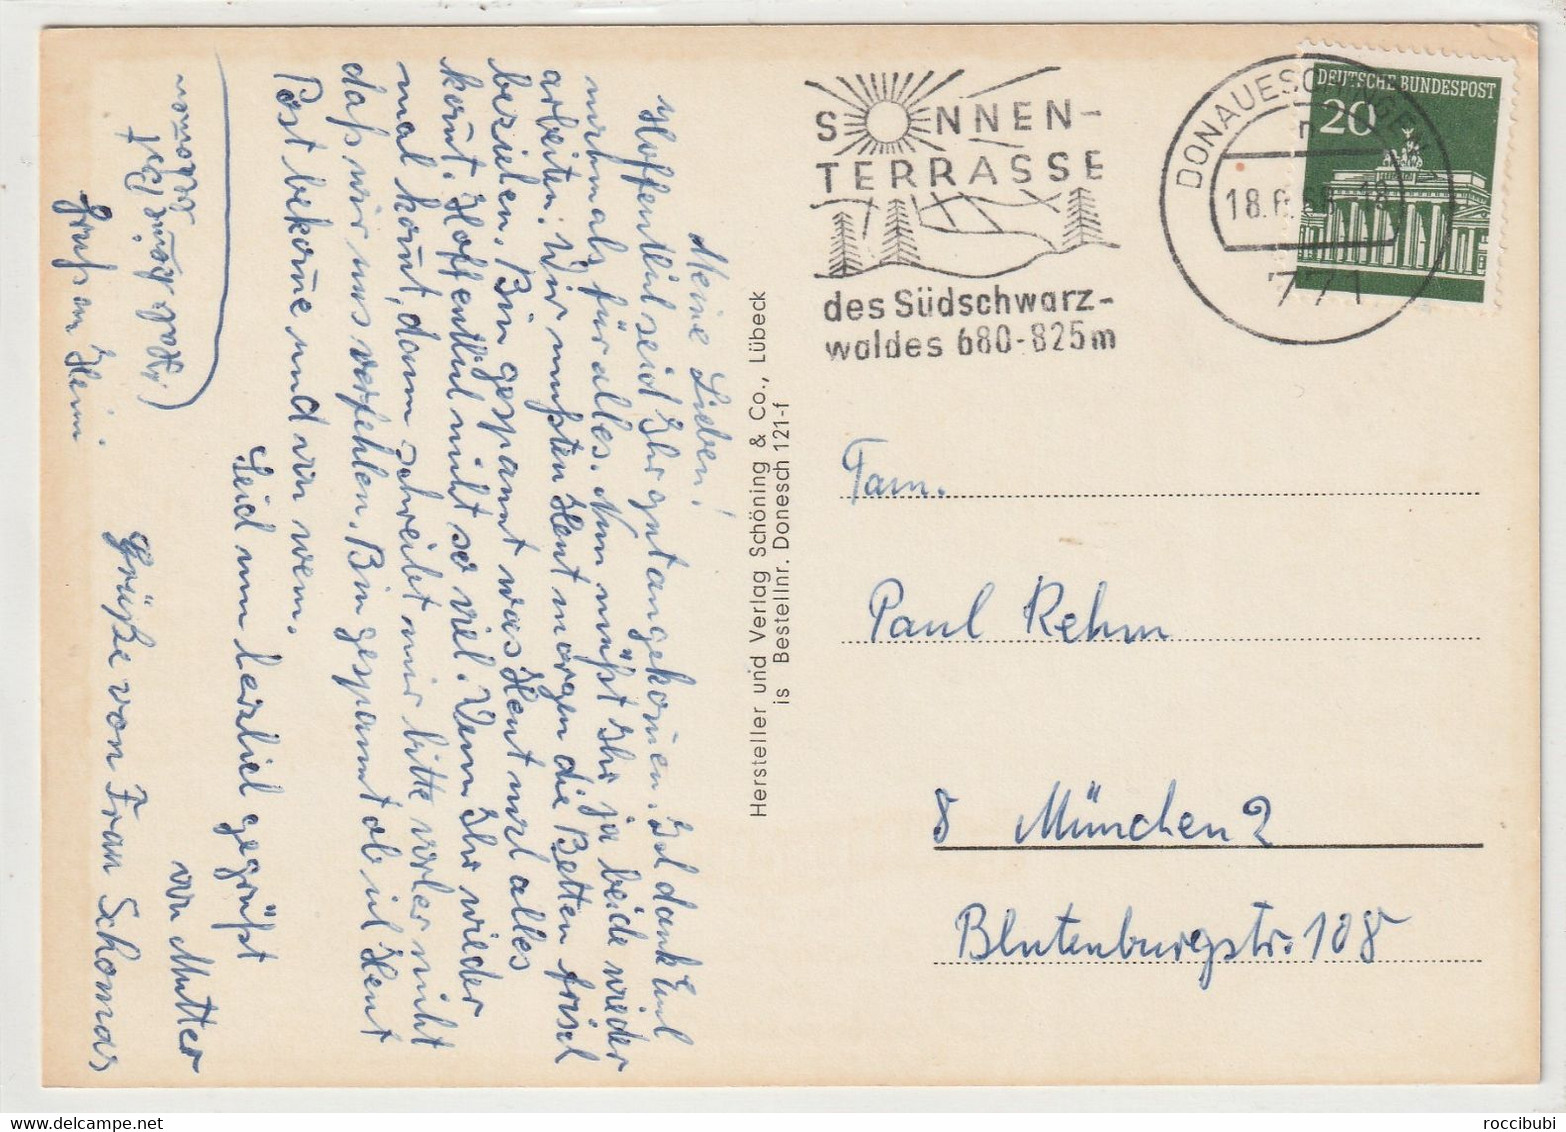 Meine Lieben!
Hoffentlich seid Ihr gut angekomen. Ich dank Euch
nochmals für alles. Nun müßt Ihr ja beide wieder
arbeiten. Wir mußten Heut morgen die Betten frisch
beziehen. Bin gespannt was Heut noch alles
komt. Hoffentlich nicht so viel. Wenn Ihr wieder
mal komt, dann schreibt mir bitte vorher nicht
daß wir uns verfehlen. Bin gespannt ob ich Heut
Post bekome und von wem.
Seid nun herzlich gegrüßt
von Mutter
Grüße von Frau Schomas
Gruß an Heini.
Post
bekomen
Hersteller und Verlag Schöning & Co., Lübeck
is Bestellnr. Donesch 121-f
SONNEN-
TERRASSE
des Südschwarz-
waldes 680-825m
DONAUESCHINGEN 1
18.6.68-18
771
DEUTSCHE BUNDESPOST
20
Fam.
Paul Rehm
8 München 2
Blutenburgstr. 108
roccibubi